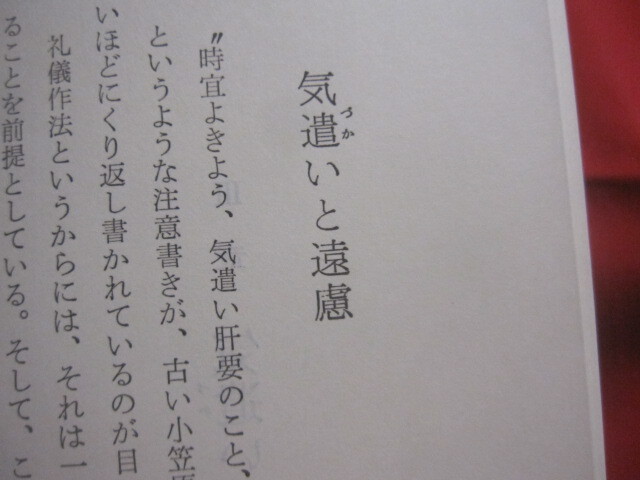 気遣いと遠慮
づか
〃時宜よきよう、気遣い肝要のこと、
というような注意書きが、古い小笠原
いほどにくり返し書かれているのが目
礼儀作法というからには、それは一
ることを前提としている。そして、こ